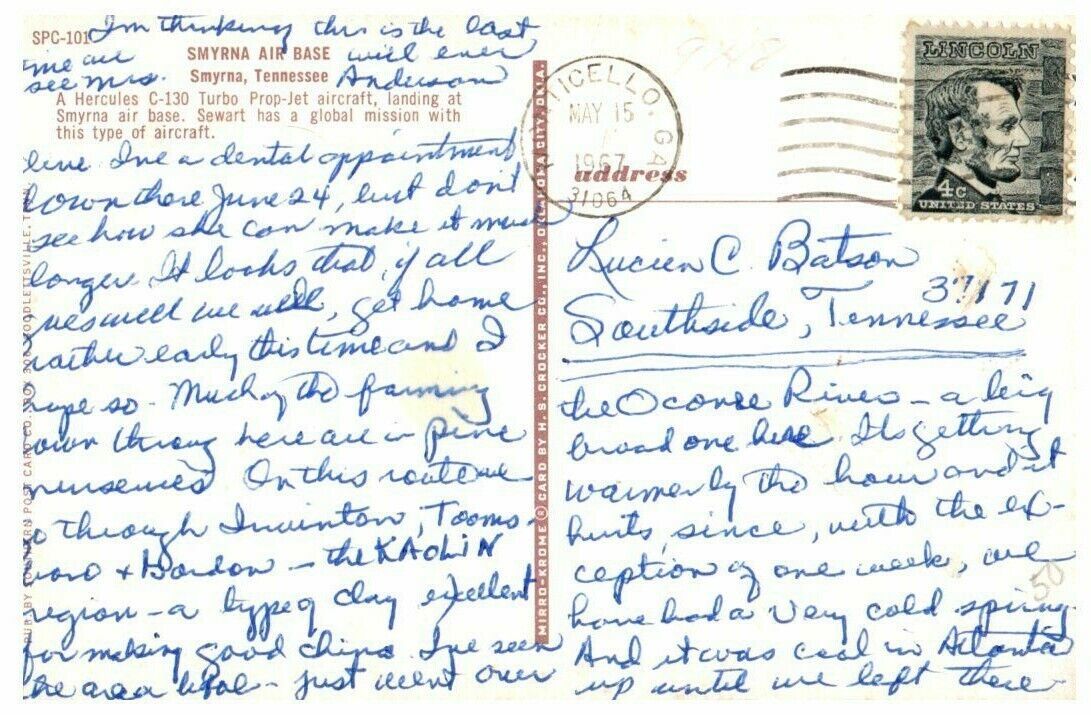 SPC-101
SMYRNA AIR BASE
Smyrna, Tennessee
A Hercules C-130 Turbo Prop-Jet aircraft, landing at
Smyrna air base. Sewart has a global mission with
this type of aircraft.
I'm thinking this is the last
time we will ever
see Mrs. Anderson
live. I've a dental appointment
down there June 24, but don't
see how she can make it much
longer. It looks that, if all
goes well we will, get home
rather early this time and I
hope so. Much of the farming
down through here are in pine
nurseries. On this route we
go through Irwinton, Tooms-
boro & Gordon - the KAOLIN
region - a type of clay excellent
for making good china. I've seen
the area before - just went over
MIRRO-KROME ® CARD BY H. S. CROCKER CO., INC., OKLAHOMA CITY, OKLA.
MONTICELLO, GA.
MAY 15
1967
31064
address
LINCOLN
4c
UNITED STATES
948
Lucien C. Batson
37171
Southside, Tennessee
the Oconee River - a big
broad one here. Its getting
warmer by the hour and it
hurts, since, with the ex-
ception of one week, we
have had a very cold spring.
And it was cool in Atlanta
up until we left there -
50